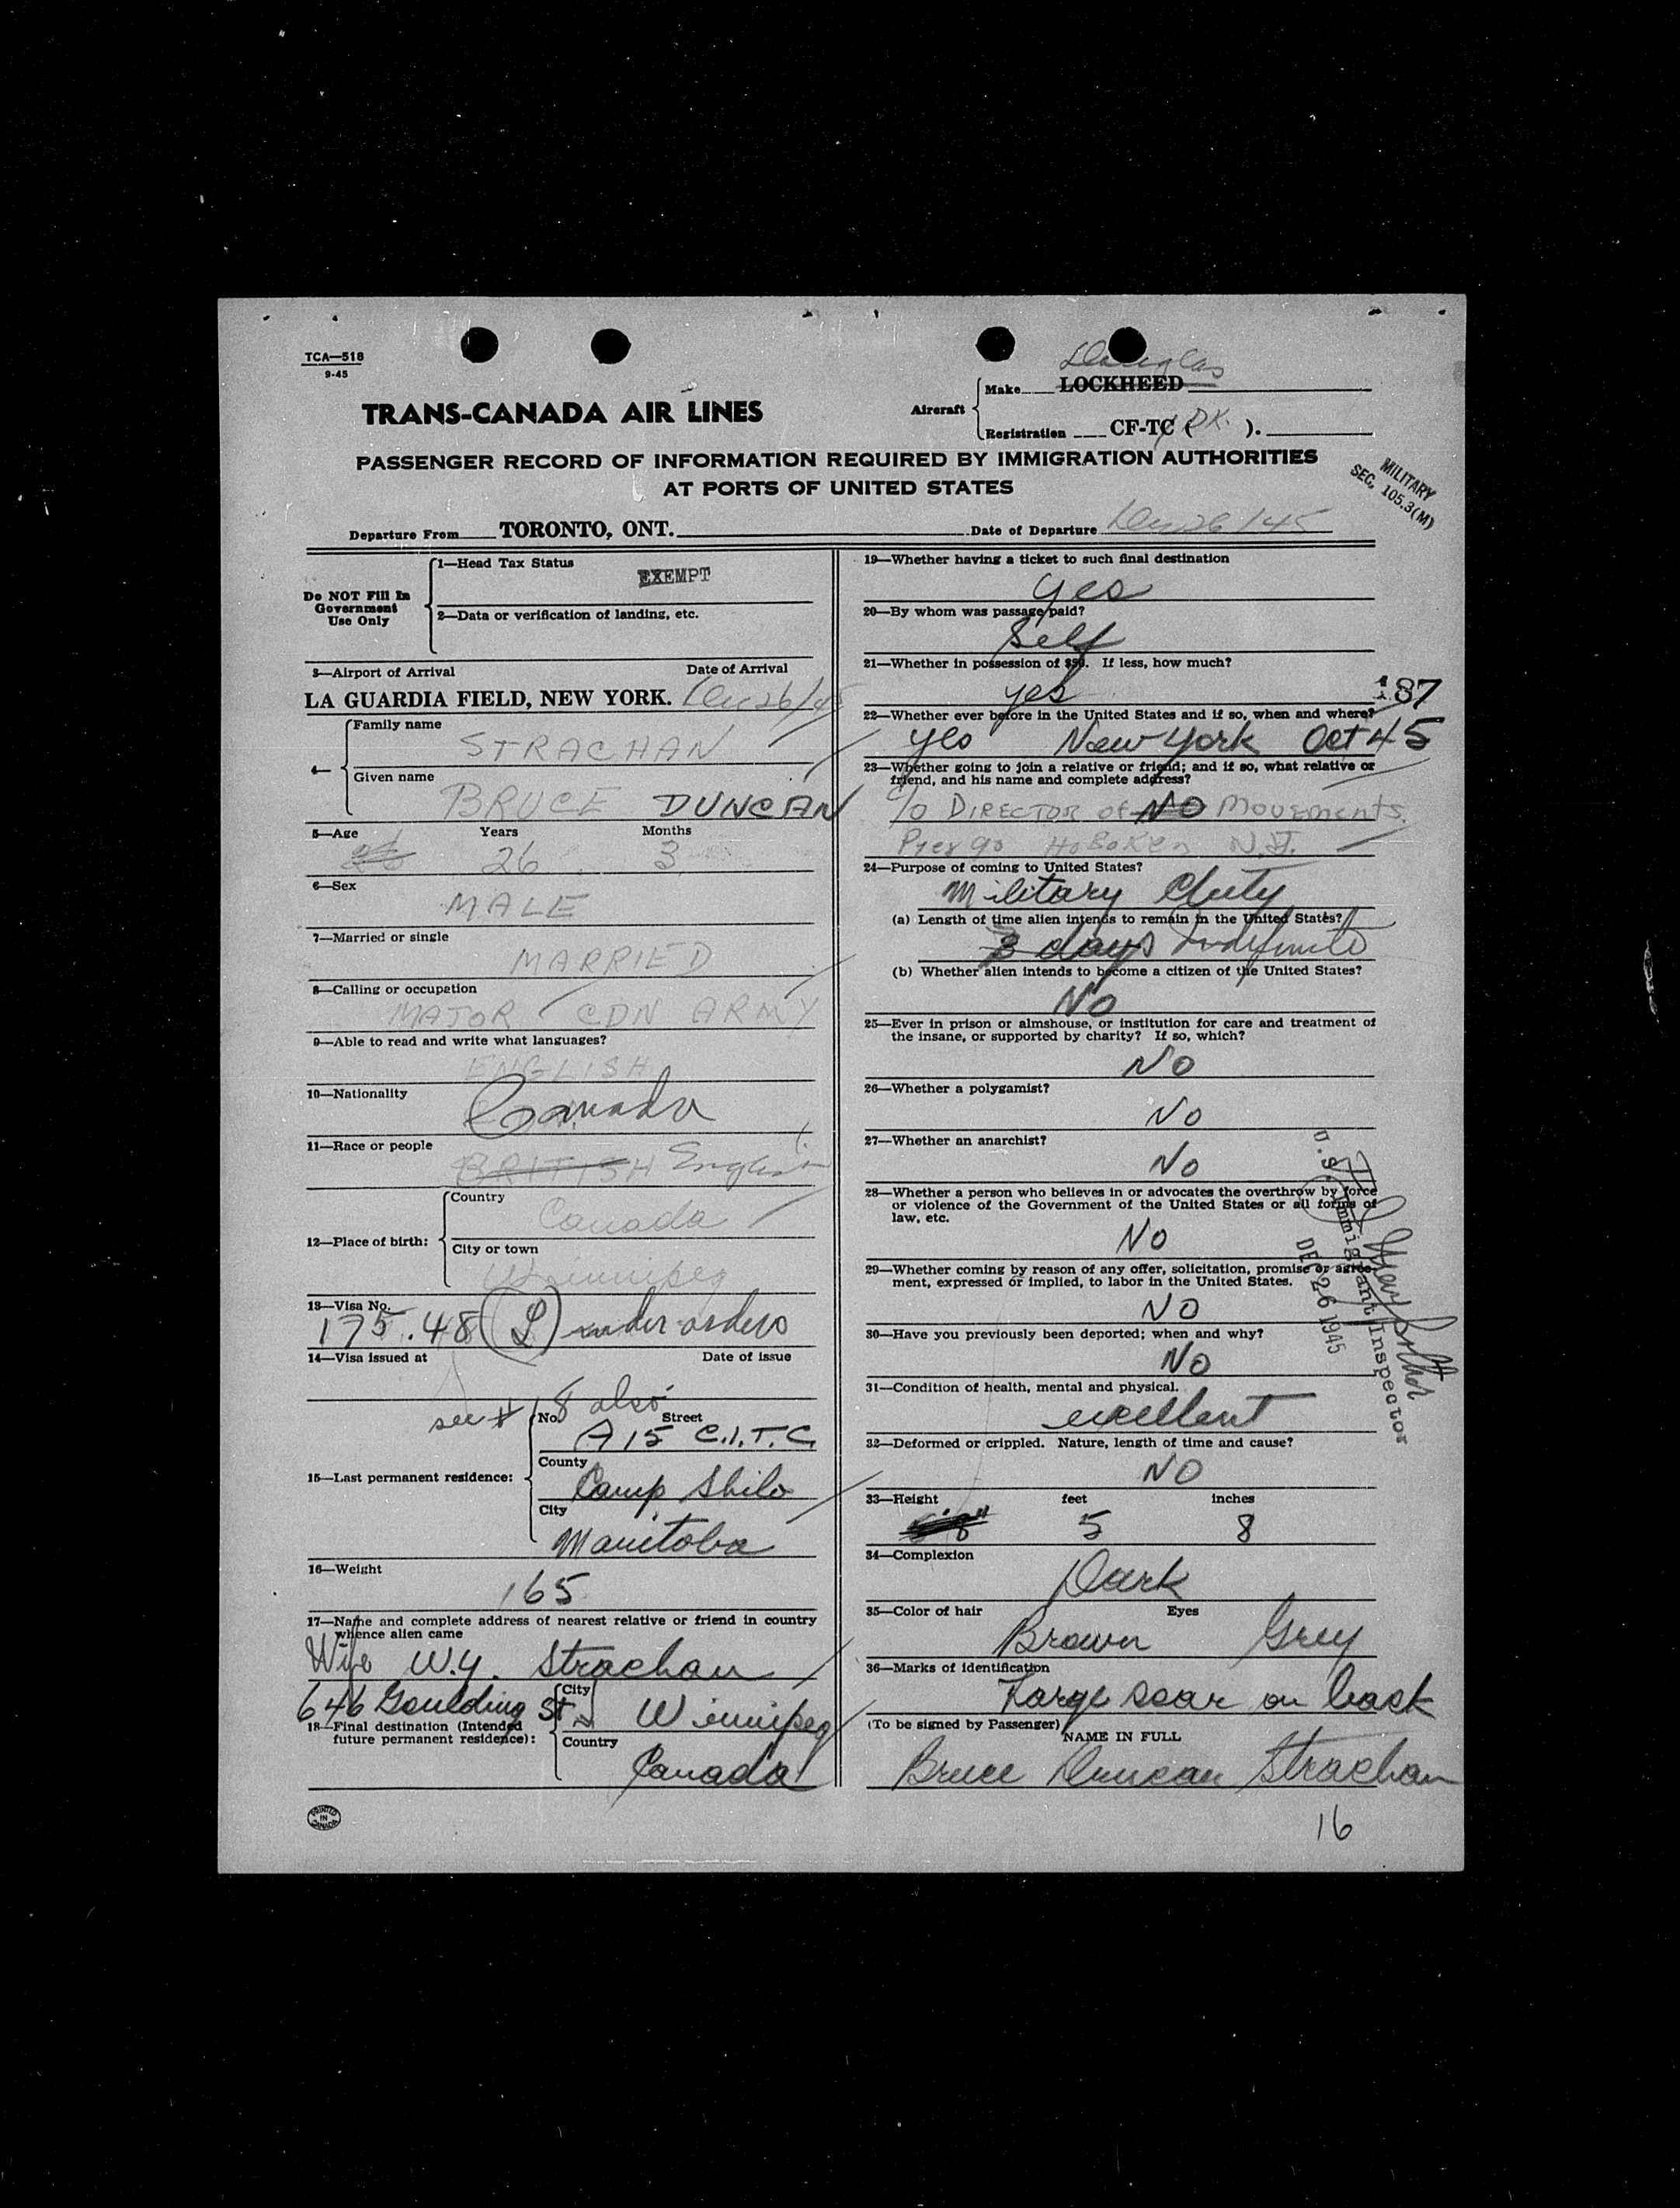 TCA—518
9-45
TRANS-CANADA AIR LINES
Aircraft
Douglas
Make LOCKHEED
Registration CF-TC ( DK. ).
PASSENGER RECORD OF INFORMATION REQUIRED BY IMMIGRATION AUTHORITIES
AT PORTS OF UNITED STATES
MILITARY
SEC. 105.3(M)
Departure From TORONTO, ONT. Date of Departure Dec 26/45
Do NOT Fill In
Government
Use Only
1—Head Tax Status
EXEMPT
2—Data or verification of landing, etc.
3—Airport of Arrival Date of Arrival
LA GUARDIA FIELD, NEW YORK. Dec 26/45
4—
Family name
STRACHAN
Given name
BRUCE DUNCAN
5—Age Years Months
26 26 3
6—Sex
MALE
7—Married or single
MARRIED
8—Calling or occupation
MAJOR CDN ARMY
9—Able to read and write what languages?
ENGLISH
10—Nationality
Canada
11—Race or people
BRITISH English
12—Place of birth:
Country
Canada
City or town
Winnipeg
13—Visa No.
175.48 (L) under orders
14—Visa issued at Date of issue
see # 18 also
15—Last permanent residence:
No. Street
A15 C.I.T.C.
County
Camp Shilo
City
Manitoba
16—Weight
165
17—Name and complete address of nearest relative or friend in country
whence alien came
Wife W.Y. Strachan
646 Goulding St
18—Final destination (Intended
future permanent residence):
City
Winnipeg
Country
Canada
PRINTED
IN
CANADA
19—Whether having a ticket to such final destination
yes
20—By whom was passage paid?
Self
21—Whether in possession of $50. If less, how much?
yes
187
22—Whether ever before in the United States and if so, when and where?
yes New York Oct 45
23—Whether going to join a relative or friend; and if so, what relative or
friend, and his name and complete address?
c/o DIRECTOR of NO MOVEMENTS.
Pier 90 HOBOKEN N.J.
24—Purpose of coming to United States?
Military duty
(a) Length of time alien intends to remain in the United States?
3 days Indefinite
(b) Whether alien intends to become a citizen of the United States?
No
25—Ever in prison or almshouse, or institution for care and treatment of
the insane, or supported by charity? If so, which?
NO
26—Whether a polygamist?
NO
27—Whether an anarchist?
NO
28—Whether a person who believes in or advocates the overthrow by force
or violence of the Government of the United States or all forms of
law, etc.
NO
29—Whether coming by reason of any offer, solicitation, promise or agree-
ment, expressed or implied, to labor in the United States.
NO
U.S. Immigrant Inspector
DEC 26 1945
30—Have you previously been deported; when and why?
NO
31—Condition of health, mental and physical.
excellent
32—Deformed or crippled. Nature, length of time and cause?
NO
33—Height feet inches
5 8
34—Complexion
Dark
35—Color of hair Eyes
Brown Grey
36—Marks of identification
Large scar on back
(To be signed by Passenger)
NAME IN FULL
Bruce Duncan Strachan
16